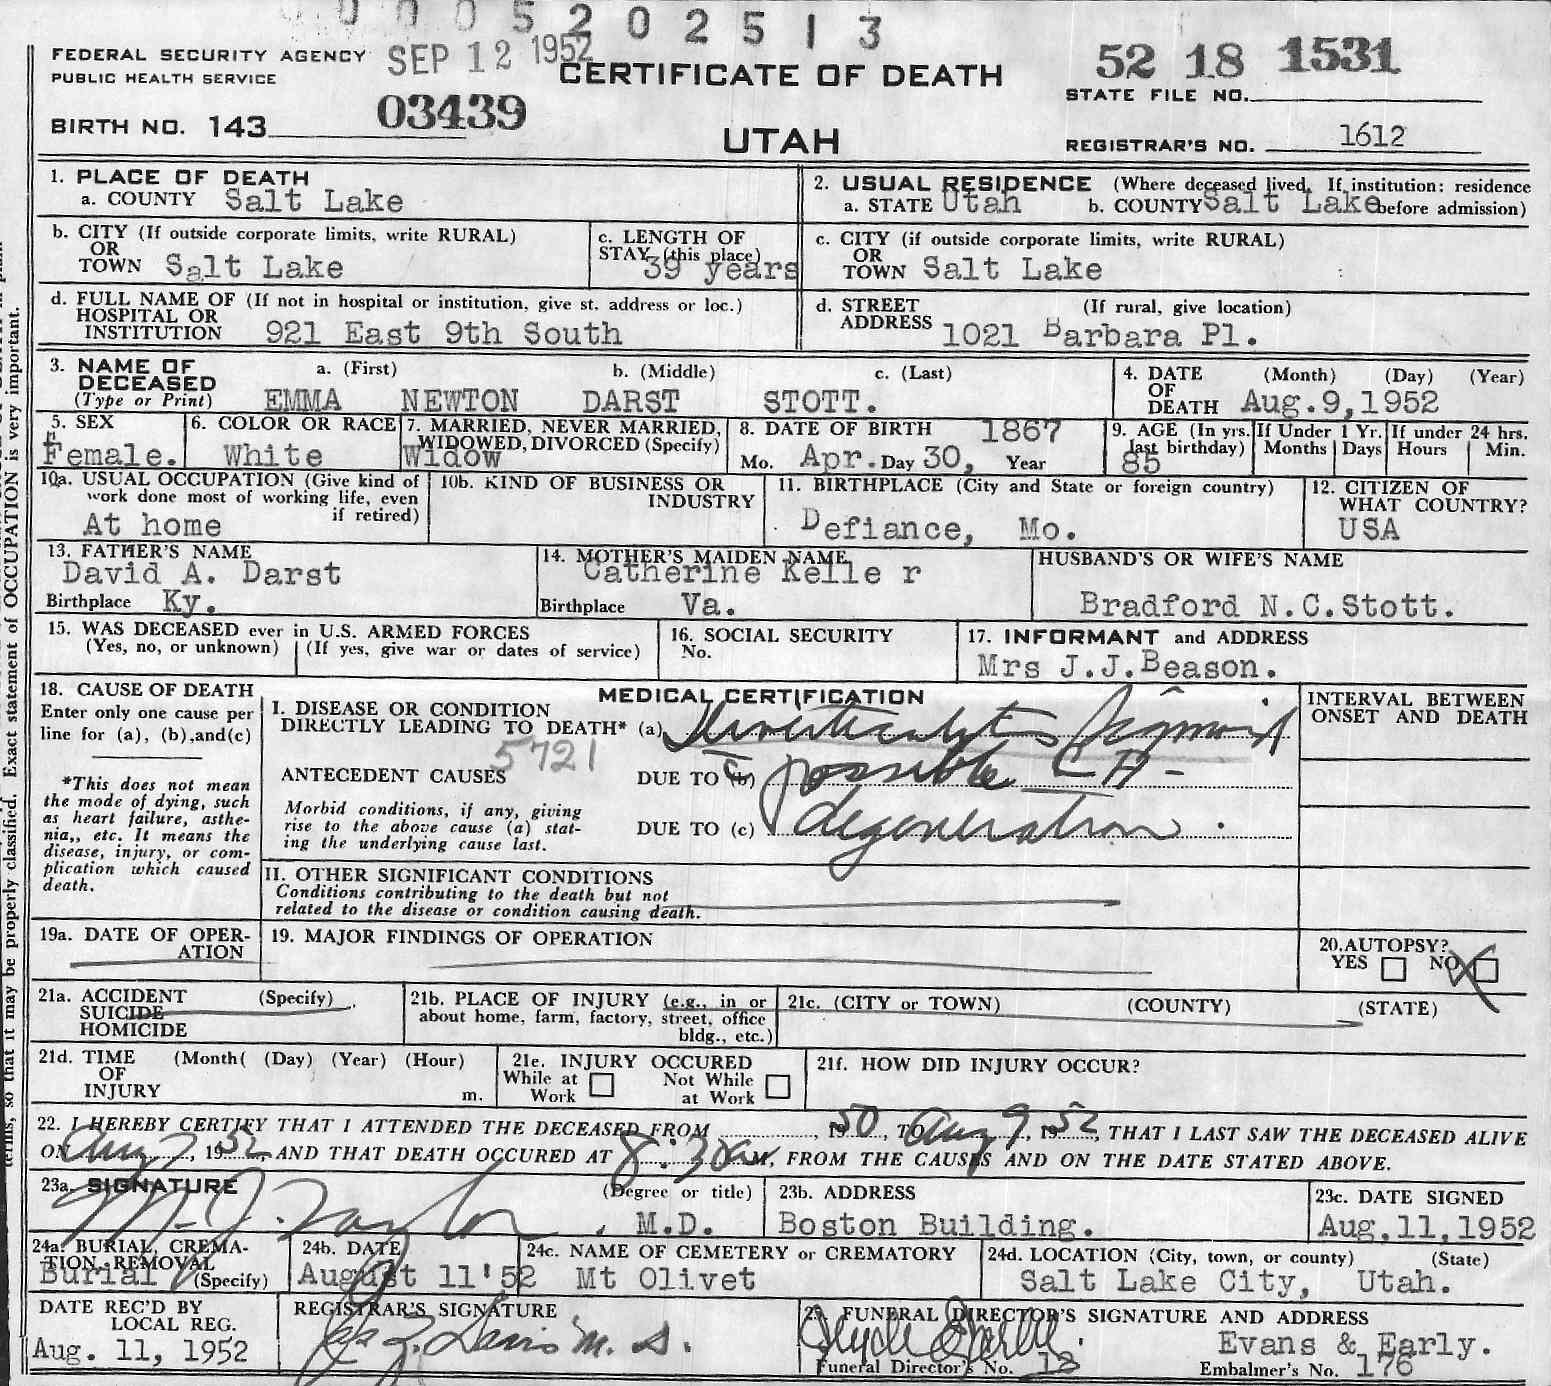 0005202513
FEDERAL SECURITY AGENCY SEP 12 1952
PUBLIC HEALTH SERVICE
CERTIFICATE OF DEATH
52 18 1531
STATE FILE NO.
BIRTH NO. 143 03439
UTAH
REGISTRAR'S NO. 1612
1. PLACE OF DEATH
a. COUNTY Salt Lake
2. USUAL RESIDENCE (Where deceased lived. If institution: residence
a. STATE Utah b. COUNTY Salt Lake before admission)
b. CITY (If outside corporate limits, write RURAL)
OR
TOWN Salt Lake
c. LENGTH OF
STAY (this place)
39 years
c. CITY (if outside corporate limits, write RURAL)
OR
TOWN Salt Lake
d. FULL NAME OF (If not in hospital or institution, give st. address or loc.)
HOSPITAL OR
INSTITUTION 921 East 9th South
d. STREET (If rural, give location)
ADDRESS 1021 Barbara Pl.
3. NAME OF a. (First) b. (Middle) c. (Last)
DECEASED
(Type or Print) EMMA NEWTON DARST STOTT.
4. DATE (Month) (Day) (Year)
OF
DEATH Aug.9,1952
5. SEX
Female.
6. COLOR OR RACE
White
7. MARRIED, NEVER MARRIED,
WIDOWED, DIVORCED (Specify)
Widow
8. DATE OF BIRTH 1867
Mo. Apr. Day 30, Year
9. AGE (In yrs.
last birthday)
85
If Under 1 Yr.
Months Days
If under 24 hrs.
Hours Min.
10a. USUAL OCCUPATION (Give kind of
work done most of working life, even
if retired)
At home
10b. KIND OF BUSINESS OR
INDUSTRY
11. BIRTHPLACE (City and State or foreign country)
Defiance, Mo.
12. CITIZEN OF
WHAT COUNTRY?
USA
13. FATHER'S NAME
David A. Darst
Birthplace Ky.
14. MOTHER'S MAIDEN NAME
Catherine Kelle r
Birthplace Va.
HUSBAND'S OR WIFE'S NAME
Bradford N.C.Stott.
15. WAS DECEASED ever in U.S. ARMED FORCES
(Yes, no, or unknown) (If yes, give war or dates of service)
16. SOCIAL SECURITY
No.
17. INFORMANT and ADDRESS
Mrs J.J.Beason.
18. CAUSE OF DEATH
Enter only one cause per
line for (a), (b),and(c)
*This does not mean
the mode of dying, such
as heart failure, asthe-
nia,, etc. It means the
disease, injury, or com-
plication which caused
death.
MEDICAL CERTIFICATION
I. DISEASE OR CONDITION
DIRECTLY LEADING TO DEATH* (a)
5721
ANTECEDENT CAUSES DUE TO (b) possible CA-
Morbid conditions, if any, giving
rise to the above cause (a) stat-
ing the underlying cause last.
DUE TO (c) degeneration.
INTERVAL BETWEEN
ONSET AND DEATH
II. OTHER SIGNIFICANT CONDITIONS
Conditions contributing to the death but not
related to the disease or condition causing death.
19a. DATE OF OPER-
ATION
19. MAJOR FINDINGS OF OPERATION
20.AUTOPSY?
YES NO X
21a. ACCIDENT (Specify)
SUICIDE
HOMICIDE
21b. PLACE OF INJURY (e.g., in or
about home, farm, factory, street, office
bldg., etc.)
21c. (CITY or TOWN) (COUNTY) (STATE)
21d. TIME (Month( (Day) (Year) (Hour)
OF
INJURY m.
21e. INJURY OCCURED
While at Work Not While at Work
21f. HOW DID INJURY OCCUR?
22. I HEREBY CERTIFY THAT I ATTENDED THE DECEASED FROM 1950, TO Aug 9, 1952, THAT I LAST SAW THE DECEASED ALIVE
ON Aug 7, 1952, AND THAT DEATH OCCURED AT 8:30 AM, FROM THE CAUSES AND ON THE DATE STATED ABOVE.
23a. SIGNATURE (Degree or title)
M. J. Taylor, M.D.
23b. ADDRESS
Boston Building.
23c. DATE SIGNED
Aug.11,1952
24a. BURIAL, CREMA-
TION, REMOVAL
Burial (Specify)
24b. DATE
August 11'52
24c. NAME OF CEMETERY or CREMATORY
Mt Olivet
24d. LOCATION (City, town, or county) (State)
Salt Lake City, Utah.
DATE REC'D BY
LOCAL REG.
Aug. 11, 1952
REGISTRAR'S SIGNATURE
Davis M.D.
25. FUNERAL DIRECTOR'S SIGNATURE AND ADDRESS
Evans & Early.
Funeral Director's No. 13 Embalmer's No. 176
terms, so that it may be properly classified. Exact statement of OCCUPATION is very important.